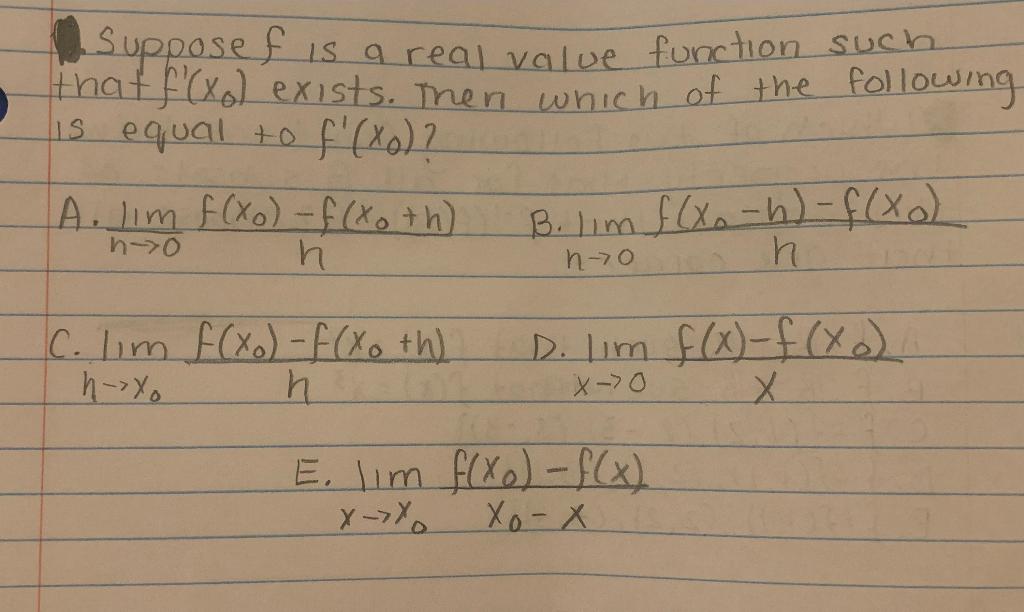 Suppose f is a real value function such
that f'(x₀) exists. Then which of the following
is equal to f'(x₀)?
A. lim f(x₀) - f(x₀ + h) B. lim f(x₀ - h) - f(x₀)
h→0 h h→0 h
C. lim f(x₀) - f(x₀ + h) D. lim f(x) - f(x₀)
h→x₀ h x→0 x
E. lim f(x₀) - f(x)
x→x₀ x₀ - x